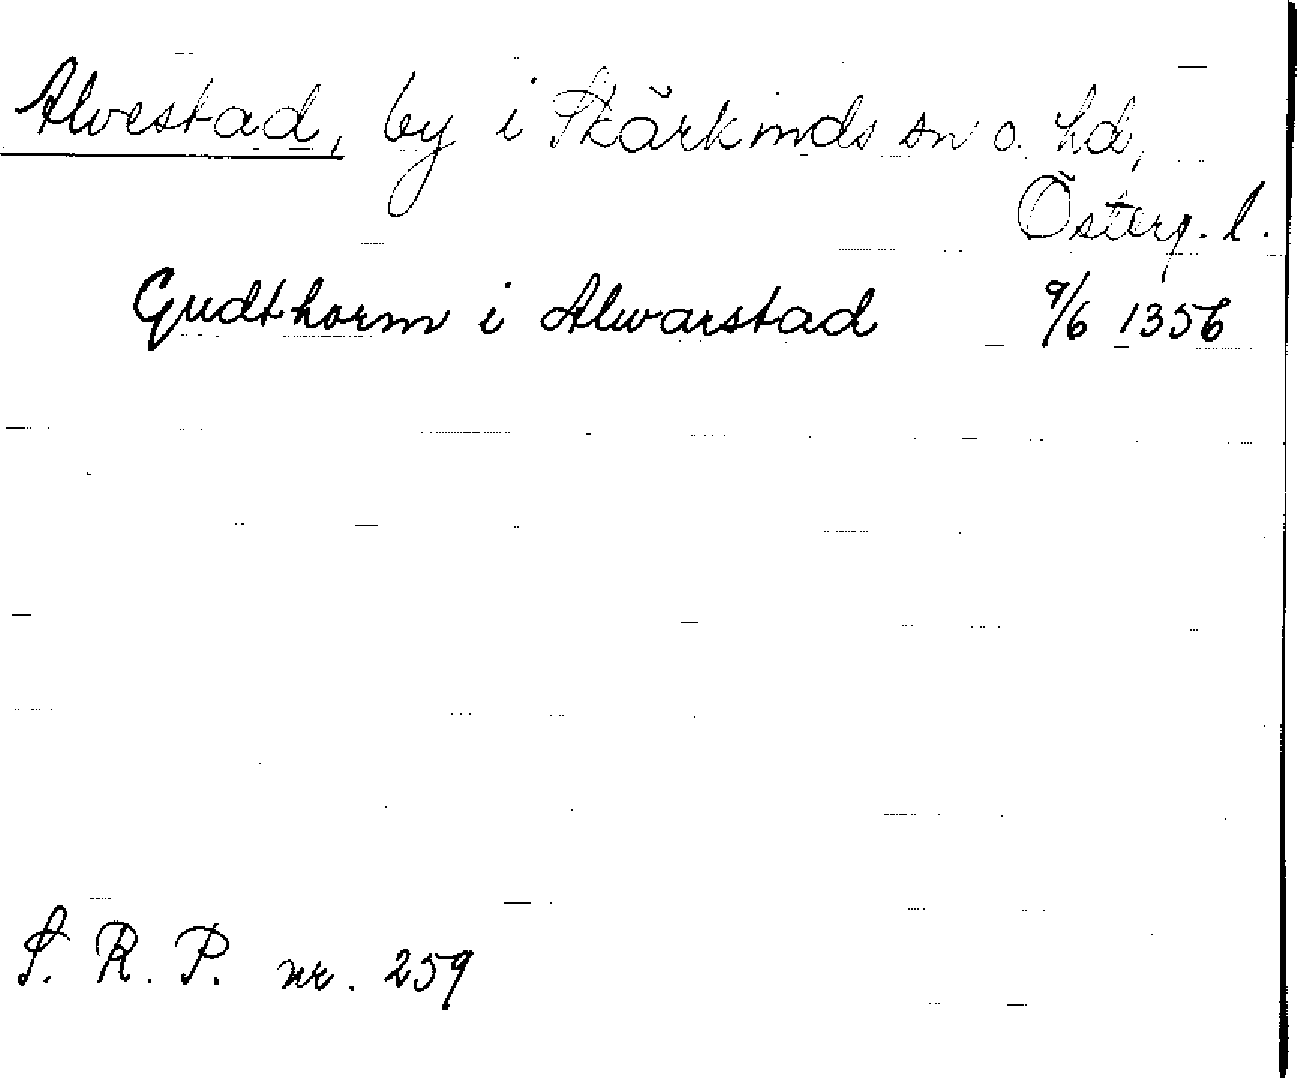 Alvestad, by i Skärkinds sn o. hd,
Österg. l.
Gudthorm i Alwarstad 9/6 1356
S. R. P. nr. 259